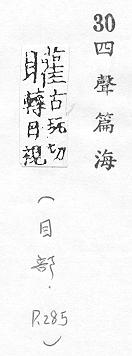 30 四聲篇海
矔古玩切
轉目視
(目部·P.285)